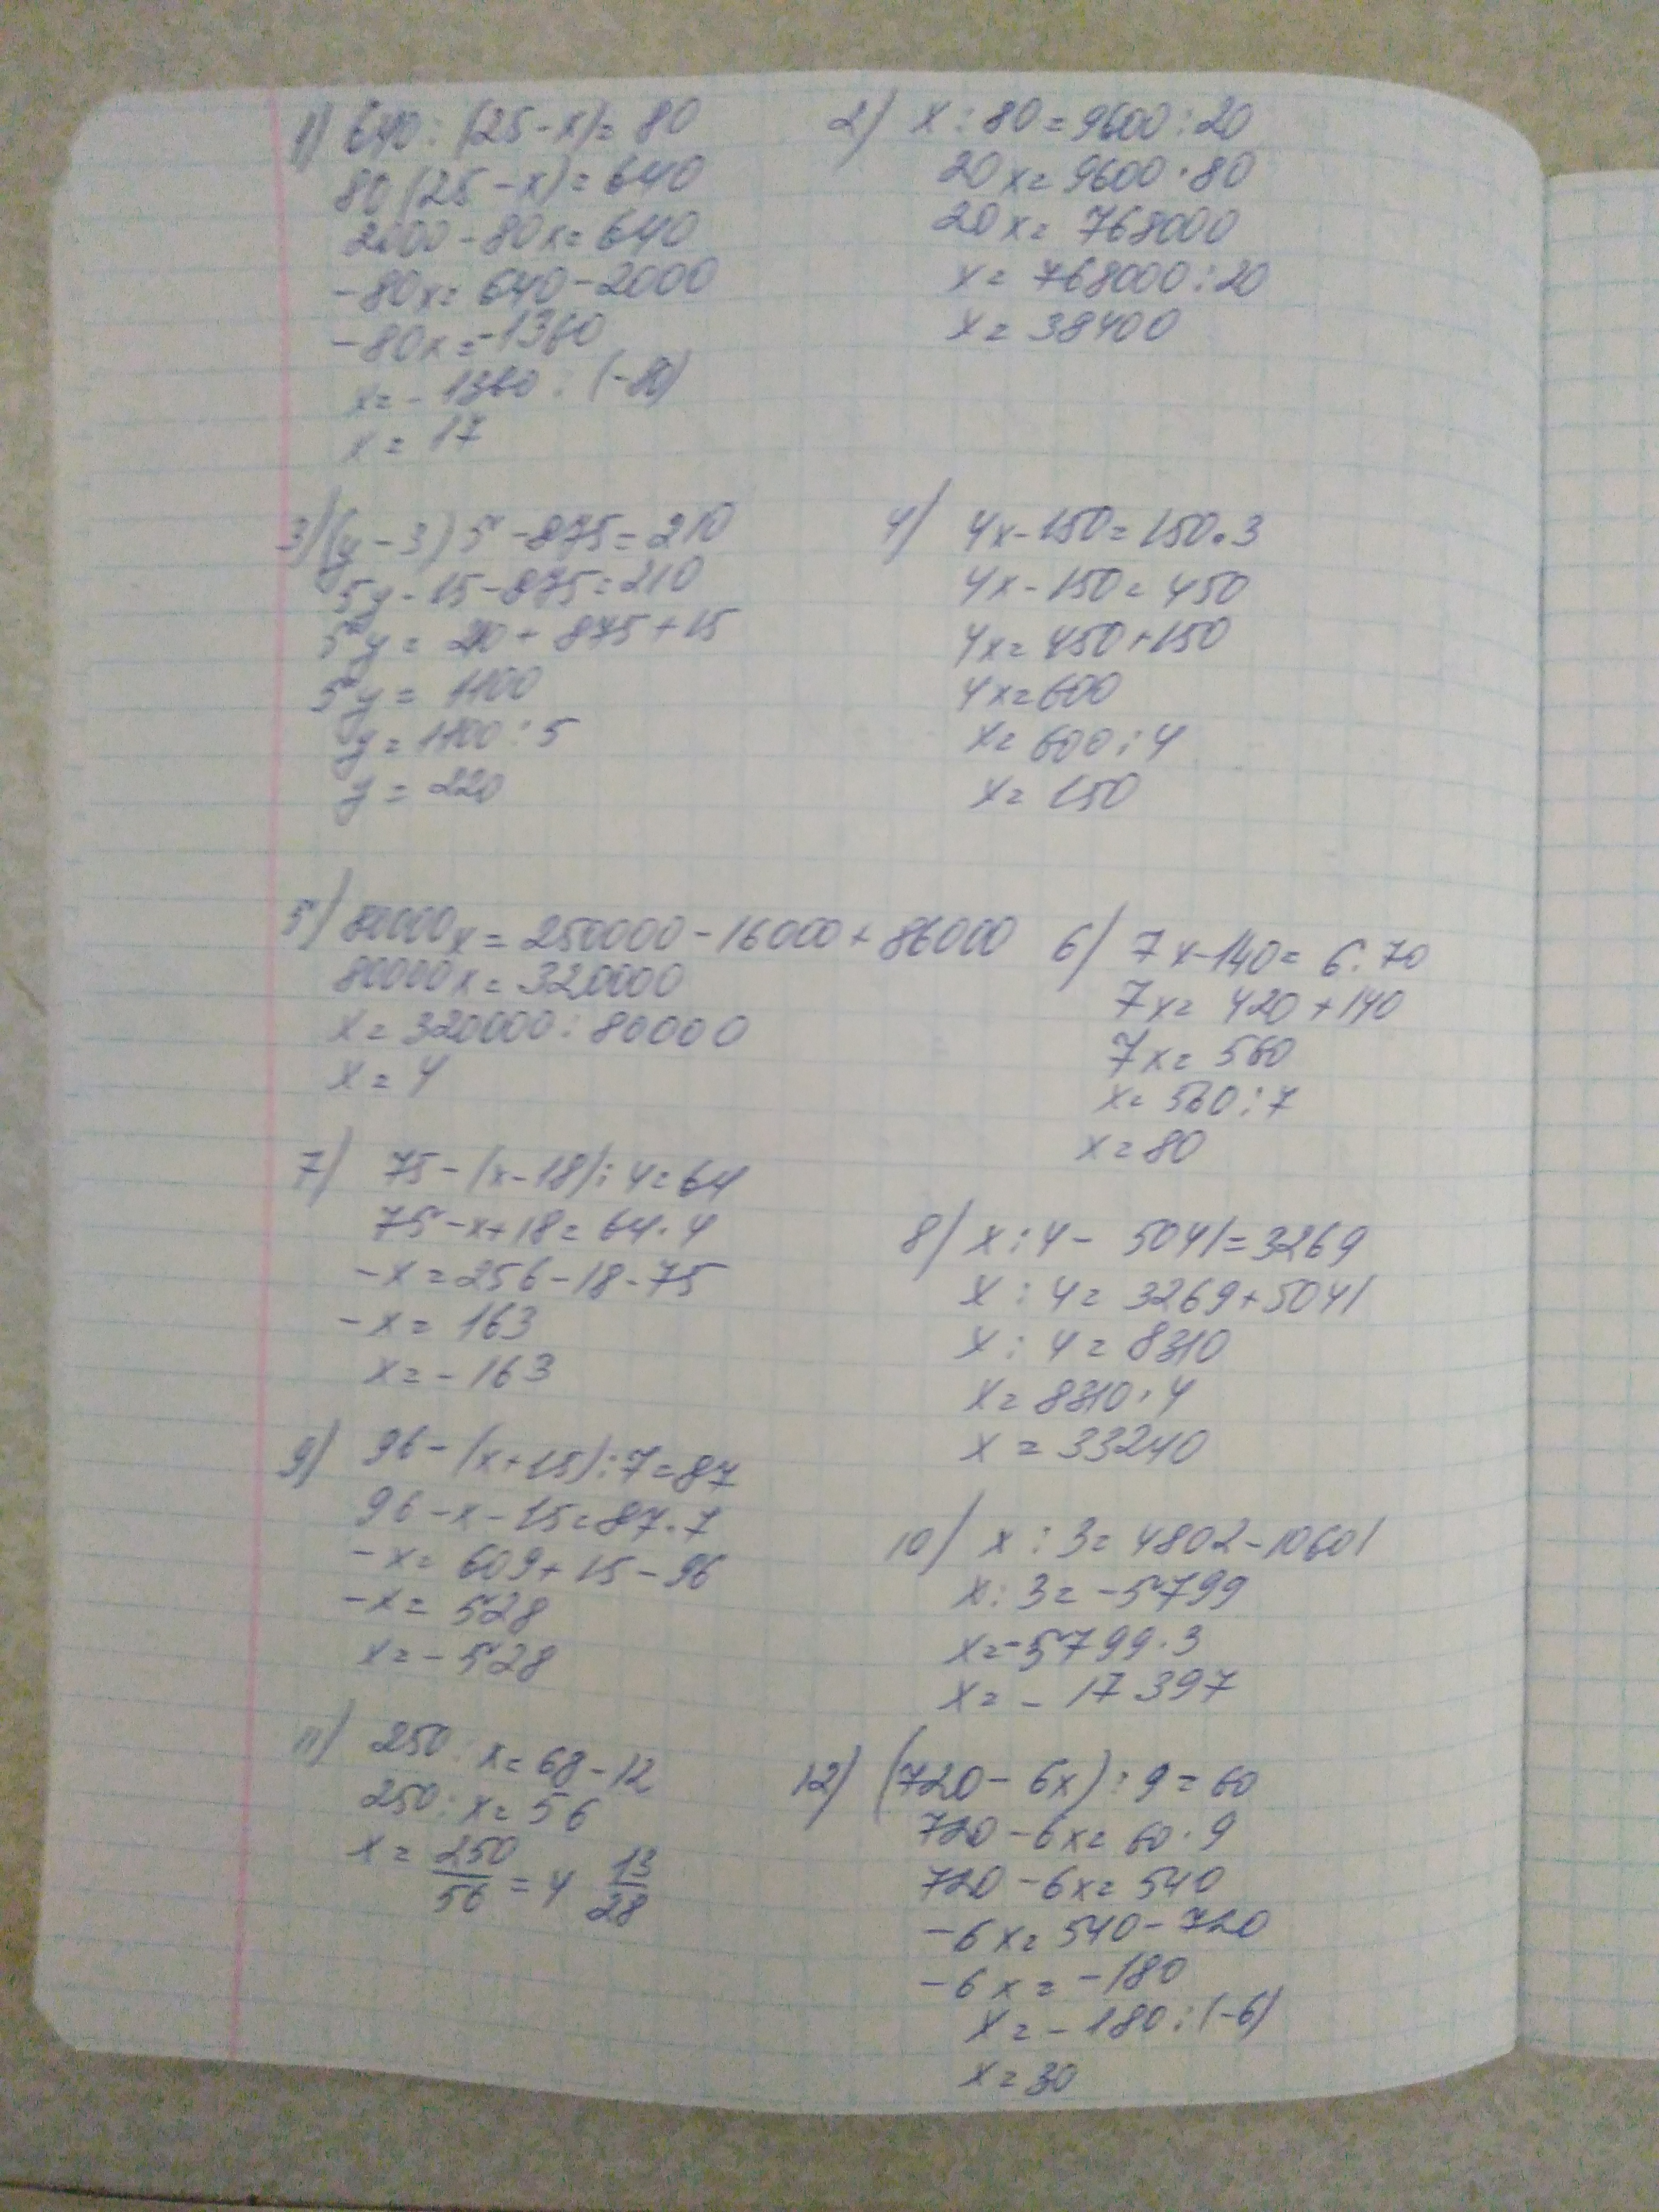 1) 640 : (25 - x) = 80
80 (25 - x) = 640
2000 - 80x = 640
-80x = 640 - 2000
-80x = -1360
x = -1360 : (-80)
x = 17
2) x : 80 = 9600 : 20
20x = 9600 · 80
20x = 768000
x = 768000 : 20
x = 38400
3) (y - 3) 5 - 875 = 210
5y - 15 - 875 = 210
5y = 210 + 875 + 15
5y = 1100
y = 1100 : 5
y = 220
4) 4x - 150 = 150 · 3
4x - 150 = 450
4x = 450 + 150
4x = 600
x = 600 : 4
x = 150
5) 80000x = 250000 - 16000 + 86000
80000x = 320000
x = 320000 : 80000
x = 4
6) 7x - 140 = 6 · 70
7x = 420 + 140
7x = 560
x = 560 : 7
x = 80
7) 75 - (x - 18) : 4 = 64
75 - x + 18 = 64 · 4
-x = 256 - 18 - 75
-x = 163
x = -163
8) x : 4 - 5041 = 3269
x : 4 = 3269 + 5041
x : 4 = 8310
x = 8310 · 4
x = 33240
9) 96 - (x + 15) : 7 = 87
96 - x - 15 = 87 · 7
-x = 609 + 15 - 96
-x = 528
x = -528
10) x : 3 = 4802 - 10601
x : 3 = -5799
x = -5799 · 3
x = -17397
11) 250 : x = 68 - 12
250 : x = 56
x = 250/56 = 4 13/28
12) (720 - 6x) : 9 = 60
720 - 6x = 60 · 9
720 - 6x = 540
-6x = 540 - 720
-6x = -180
x = -180 : (-6)
x = 30